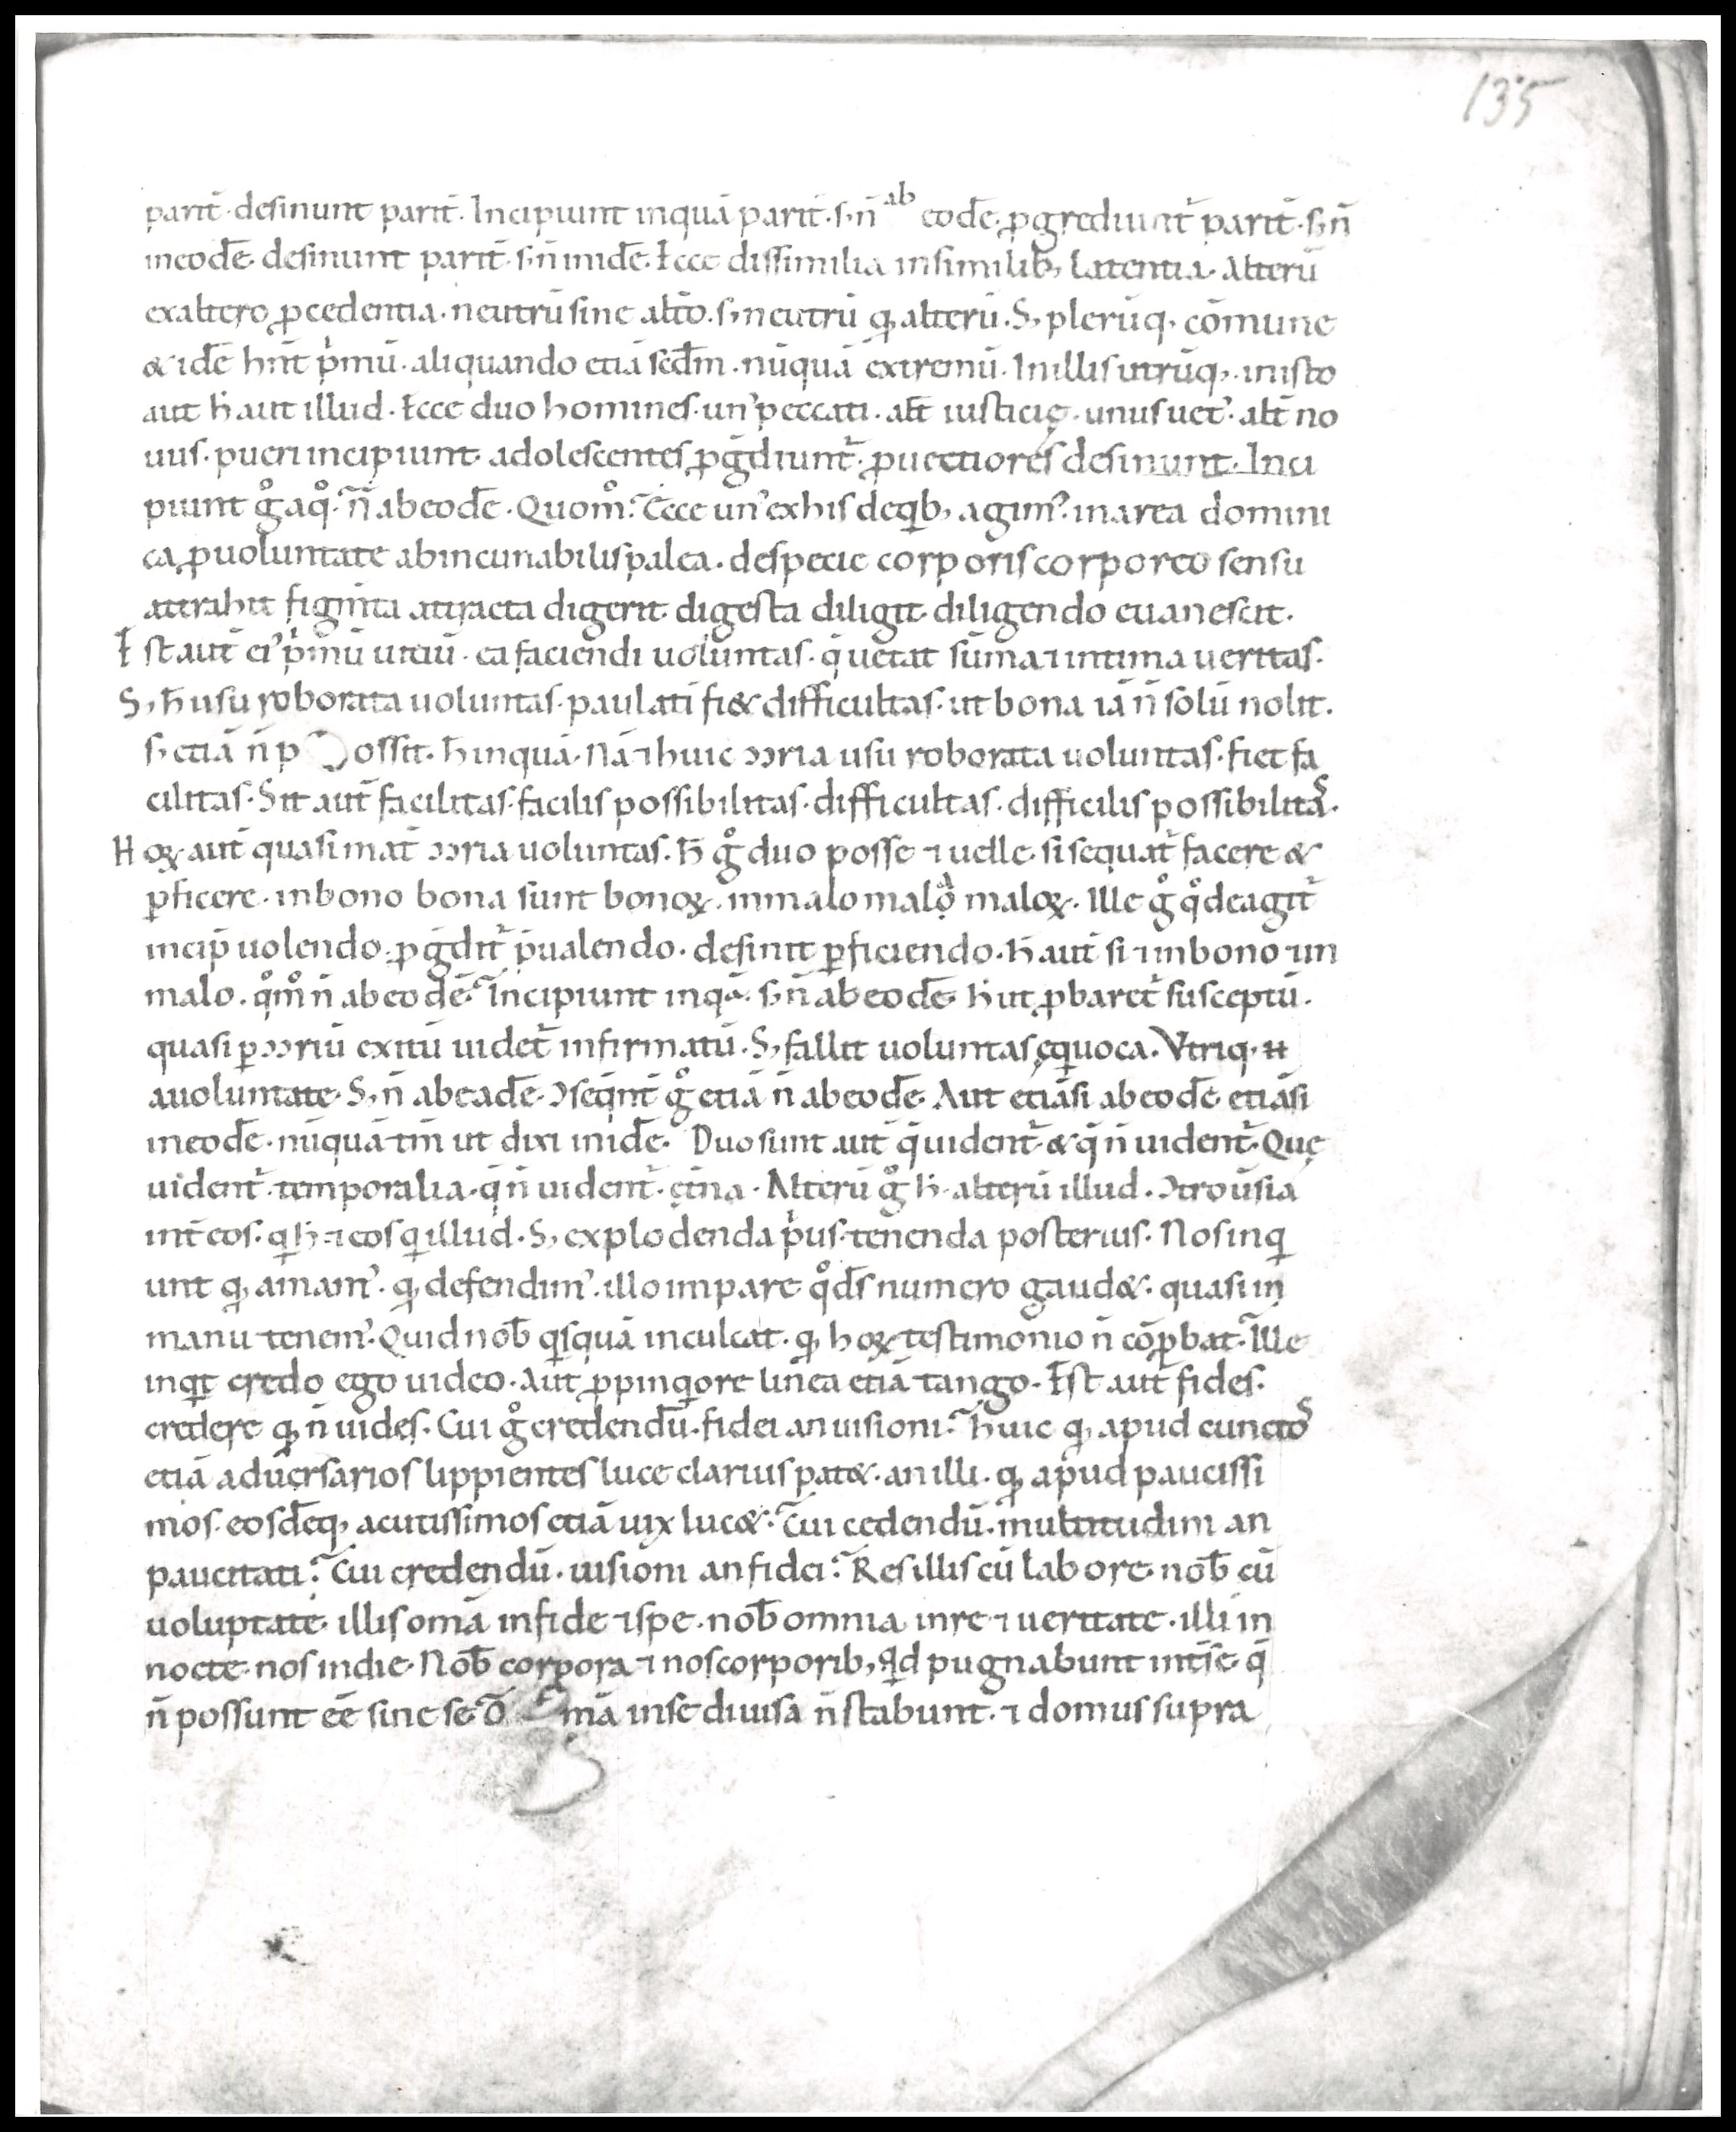 135
parit̄· desinunt parit̄· Incipiunt inquā parit̄· s; n̄ ab eodē· ꝓgrediunt᷑ parit̄· s; n̄
ineodē· desinunt parit̄· s; n̄ inidē· Ecce dissimilia insimilib; Latentia· Alterū
exaltero ꝓcedentia· neutrū sine alt̄o· s; neutrū qđ alterū· S; plerūq; cōmune
& idē hn̄t pͥmū· aliquando etiā sed̄m· nūquā extremū· Inillis utrūq;· inisto
aut h̄ aut illud· Ecce duo homines· unꝰ peccati· alt̄ iusticię· unus uetꝰ· alt̄ no
uus· pueri incipiunt· adolescentes ꝓḡdiunt᷑· ꝓuectiores desinunt· Inci
piunt gͦ aqͦ· n̄ abeodē· Quom̊? Ecce unꝰ exhis deqͥb; agimꝰ· inarea domini
ca ꝓuoluntate abincunabilis palea· despecie corporis corporeo sensu
attrahit figm̄ta attracta digerit· digesta diligit· diligendo euanescit·
Est aut̄ eiꝰ pͥmū uitiū· ea faciendi uoluntas· q̄ uetat sūma ⁊ intima ueritas·
S; h̄ usu roborata uoluntas· paulatī fi& difficultas· ut bona iā n̄ solū nolit·
s; etiā n̄ p ossit· h̄ inquā· Nā ⁊ huic ↄͻria usu roborata uoluntas· fiet fa
cilitas· Sit aut̄ facilitas· facilis possibilitas· difficultas· difficilis possibilitas·
Hoꝝ aut̄ quasi mat̄ ↄͻria uoluntas· h̄ gͦ duo posse ⁊ uelle· si sequat᷑ facere &
ꝑficere· inbono bona sunt bonoꝝ· inmalo mala maloꝝ· Ille gͦ qͦ deagit᷑
incip̄ uolendo· ꝓḡdit᷑ p̄ualendo· desinit ꝑficiendo· h̄ aut̄ si ⁊ inbono ⁊ in
malo· qͦm̊ n̄ abeodē? Incipiunt inqͣ· s; n̄ abeodē· h̄ ut ꝓbaret᷑ susceptū·
quasi ꝑ ↄͻriū exitū uidet᷑ infirmatū· S; fallit uoluntas ęquoca· Vtriq;
auoluntate· S; n̄ abeadē· ↄseqn̄t gͦ etiā n̄ abeodē· Aut etiāsi abeodē· etiāsi
ineodē· nūquā tm̄ ut dixi inidē· Duo sunt aut̄ q̄ uident᷑· & q̄ n̄ uident᷑· Quę
uident᷑· temporalia· q̄ n̄ uident᷑· ęt̄na· Alterū gͦ h̄· alterū illud· ↄtrou̅sia
int̄ eos· qͥ h̄· ⁊ eos qͥ illud· S; explodenda pͥus· tenenda posterius· Nos inqͥ
unt qđ amamꝰ· qđ defendimꝰ· illo impare qͦ ds̄ numero gaud&· quasi in
manu tenemꝰ· Quid nob̄ qͥsquā inculcat· qđ hoꝝ testimonio n̄ cōꝓbat? Ille
inqͥt credo ego uideo· Aut ꝓpinqͥore linea etiā tango· Est aut̄ fides·
credere qđ n̄ uides· Cui gͦ credendū· fidei an uisioni? huic qđ apud cunctos
etiā aduersarios lippientes luce clarius pat&· an illi· qđ apud paucissi
mos· eosdēq; acutissimos etiā uix luc&? Cui cedendū· multitudini an
paucitati? Cui credendū· uisioni an fidei? Res illis cū labore· nob̄ cū
uoluptate· illis om̄a in fide ⁊ spe· nob̄ omnia inre ⁊ ueritate· illi in
nocte· nos indie· Nob̄ corpora ⁊ nos corporib; Qͥd pugnabunt int̄se q̄
n̄ possunt eē sine se· O m̄a inse diuisa n̄ stabunt· ⁊ domus supra